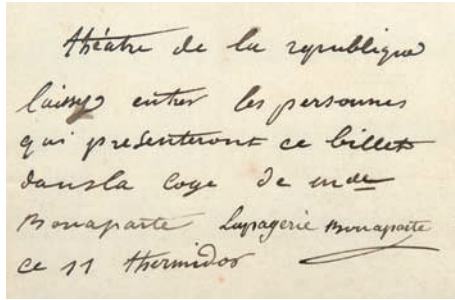 théatre de la republique
laissez entrer les personnes
qui presenteront ce billet
dans la loge de mde
Bonaparte Lapagerie Bonaparte
ce 11 thermidor